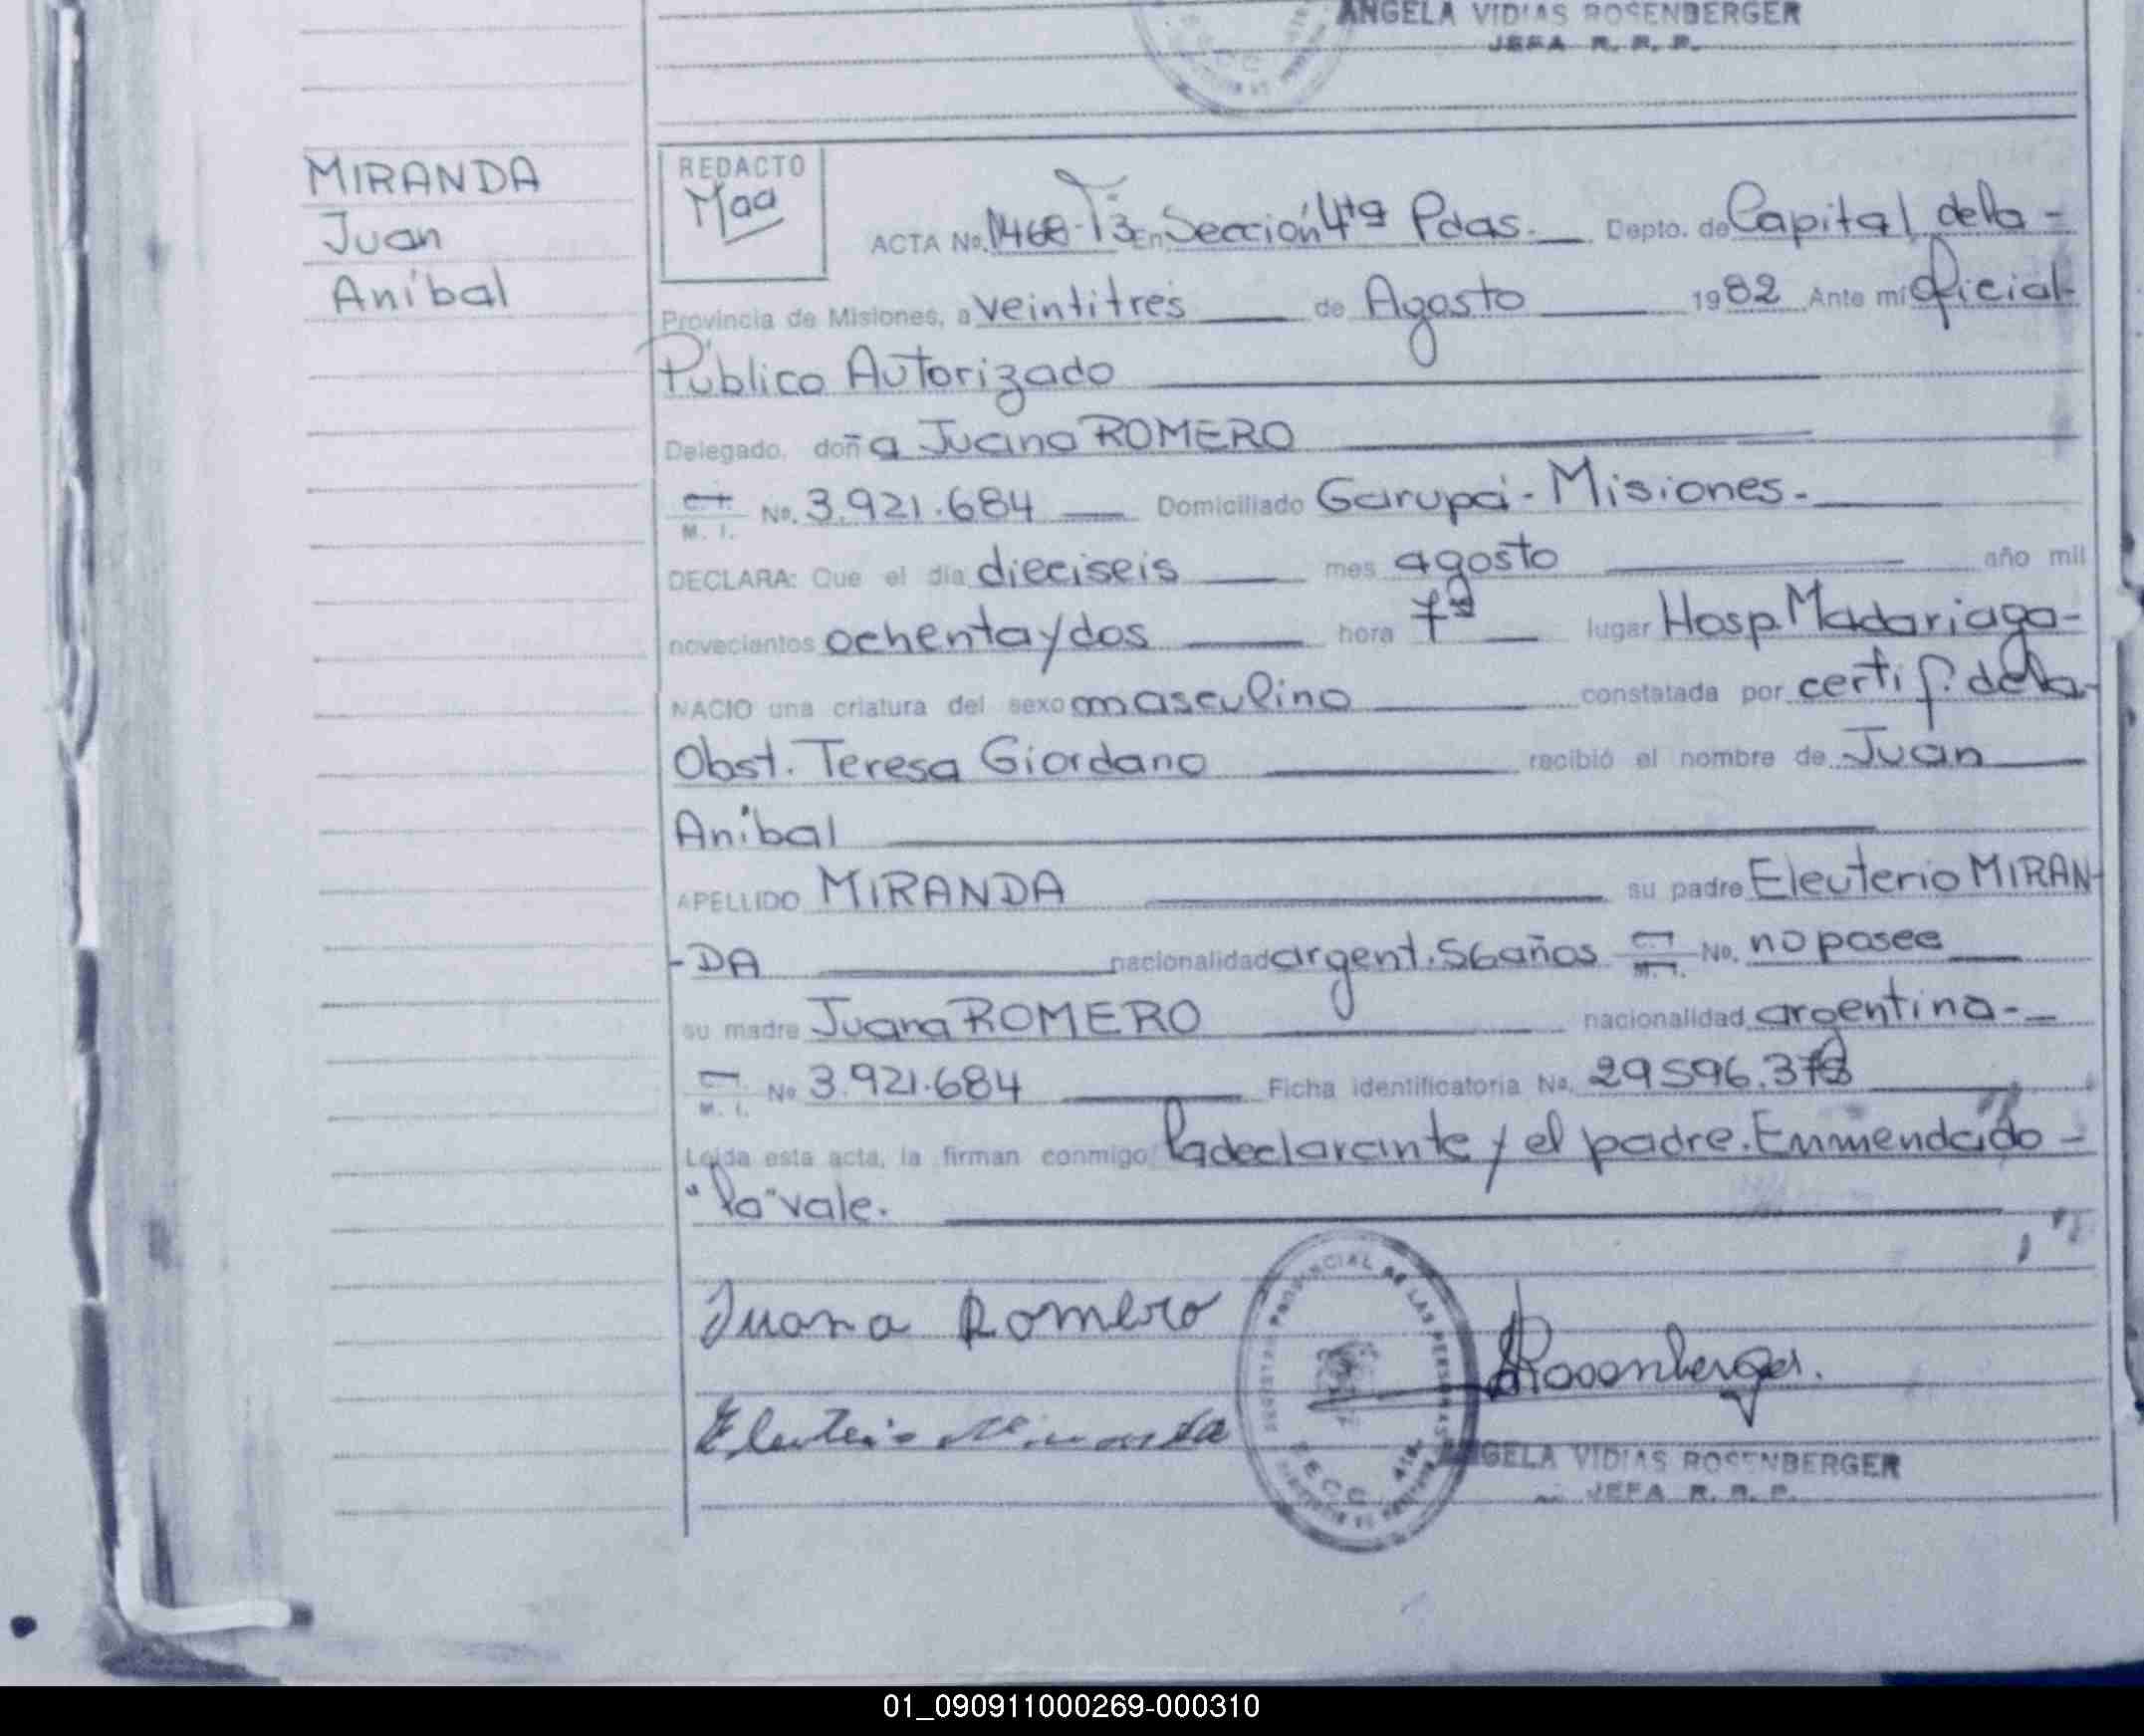 ANGELA VIDIAS ROSENBERGER
JEFA R. R. P.
MIRANDA
Juan
Aníbal
REDACTO
Maa
ACTA No. 1468-T3 En Sección 4ta Pdas. Depto. de Capital de la -
Provincia de Misiones, a veintitrés de Agosto 1982 Ante mí Oficial
Público Autorizado
Delegado, doña Juana ROMERO
C.I. M. I. No. 3.921.684 Domiciliado Garupá - Misiones.
DECLARA: Que el día dieciseis mes agosto año mil
novecientos ochenta y dos hora 7a lugar Hosp. Madariaga-
NACIO una criatura del sexo masculino constatada por certif. de la
Obst. Teresa Giordano recibió el nombre de Juan
Aníbal
APELLIDO MIRANDA su padre Eleuterio MIRAN-
-DA nacionalidad argent. 56 años C.I. M. I. No. no posee
su madre Juana ROMERO nacionalidad argentina.-
C.I. M. I. No 3.921.684 Ficha identificatoria No. 29596.378
Leída esta acta, la firman conmigo la declarante y el padre. Enmendado -
"la" vale.
Juana Romero
Eleuterio Miranda
REGISTRO PROVINCIAL DE LAS PERSONAS
SECC. 4ta.
Rosenberger.
ANGELA VIDIAS ROSENBERGER
JEFA R. R. P.
01_090911000269-000310